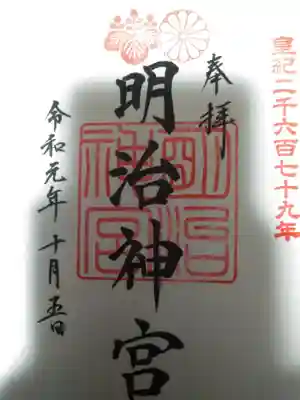 皇紀二千六百七十九年
奉拝
明治神宮
明治
神宮
令和元年十月五日